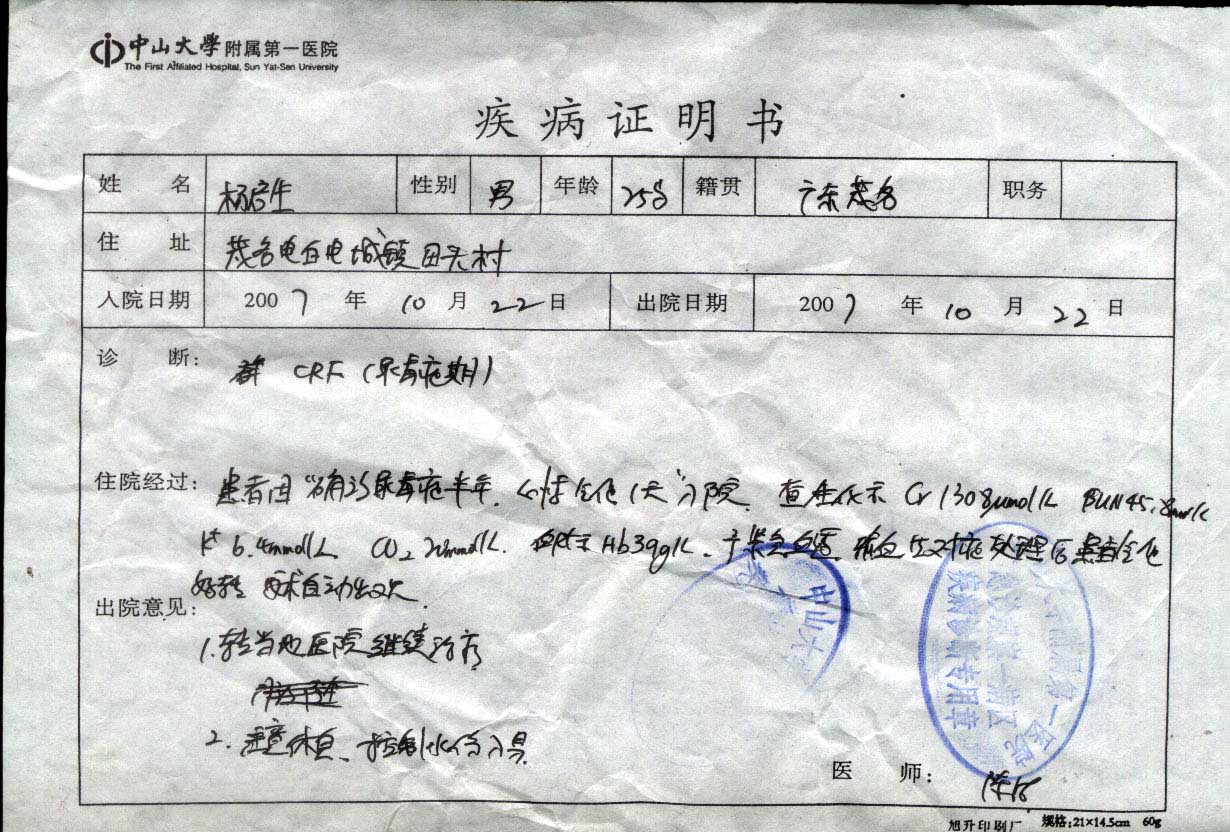 中山大学附属第一医院
The First Affiliated Hospital, Sun Yat-Sen University
疾病证明书
姓名 杨启生 性别 男 年龄 25岁 籍贯 广东茂名 职务
住址 茂名电白电城镇田头村
入院日期 2007年10月22日 出院日期 2007年10月22日
诊断: CRF(尿毒症期)
住院经过: 患者因"确诊尿毒症半年, 心悸 1天"入院. 查生化示 Cr 1308μmol/L BUN 45.8mmol/L
K+ 6.4mmol/L CO2 20mmol/L. Hb39g/L. 予 对症处理后患者
好转 要求自动出院.
出院意见:
1.转当地医院继续治疗
2. 注意休息、控制水份入量
医师: 陈
中山大学
属第一医院
病区
疾病诊断专用章
旭升印刷厂 规格:21×14.5cm 60g